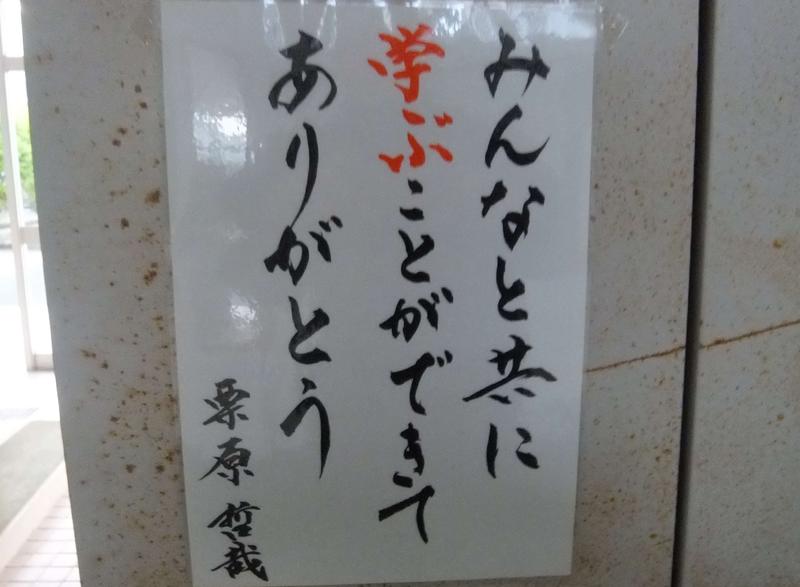 みんなと共に
学ぶことができて
ありがとう
栗原哲哉